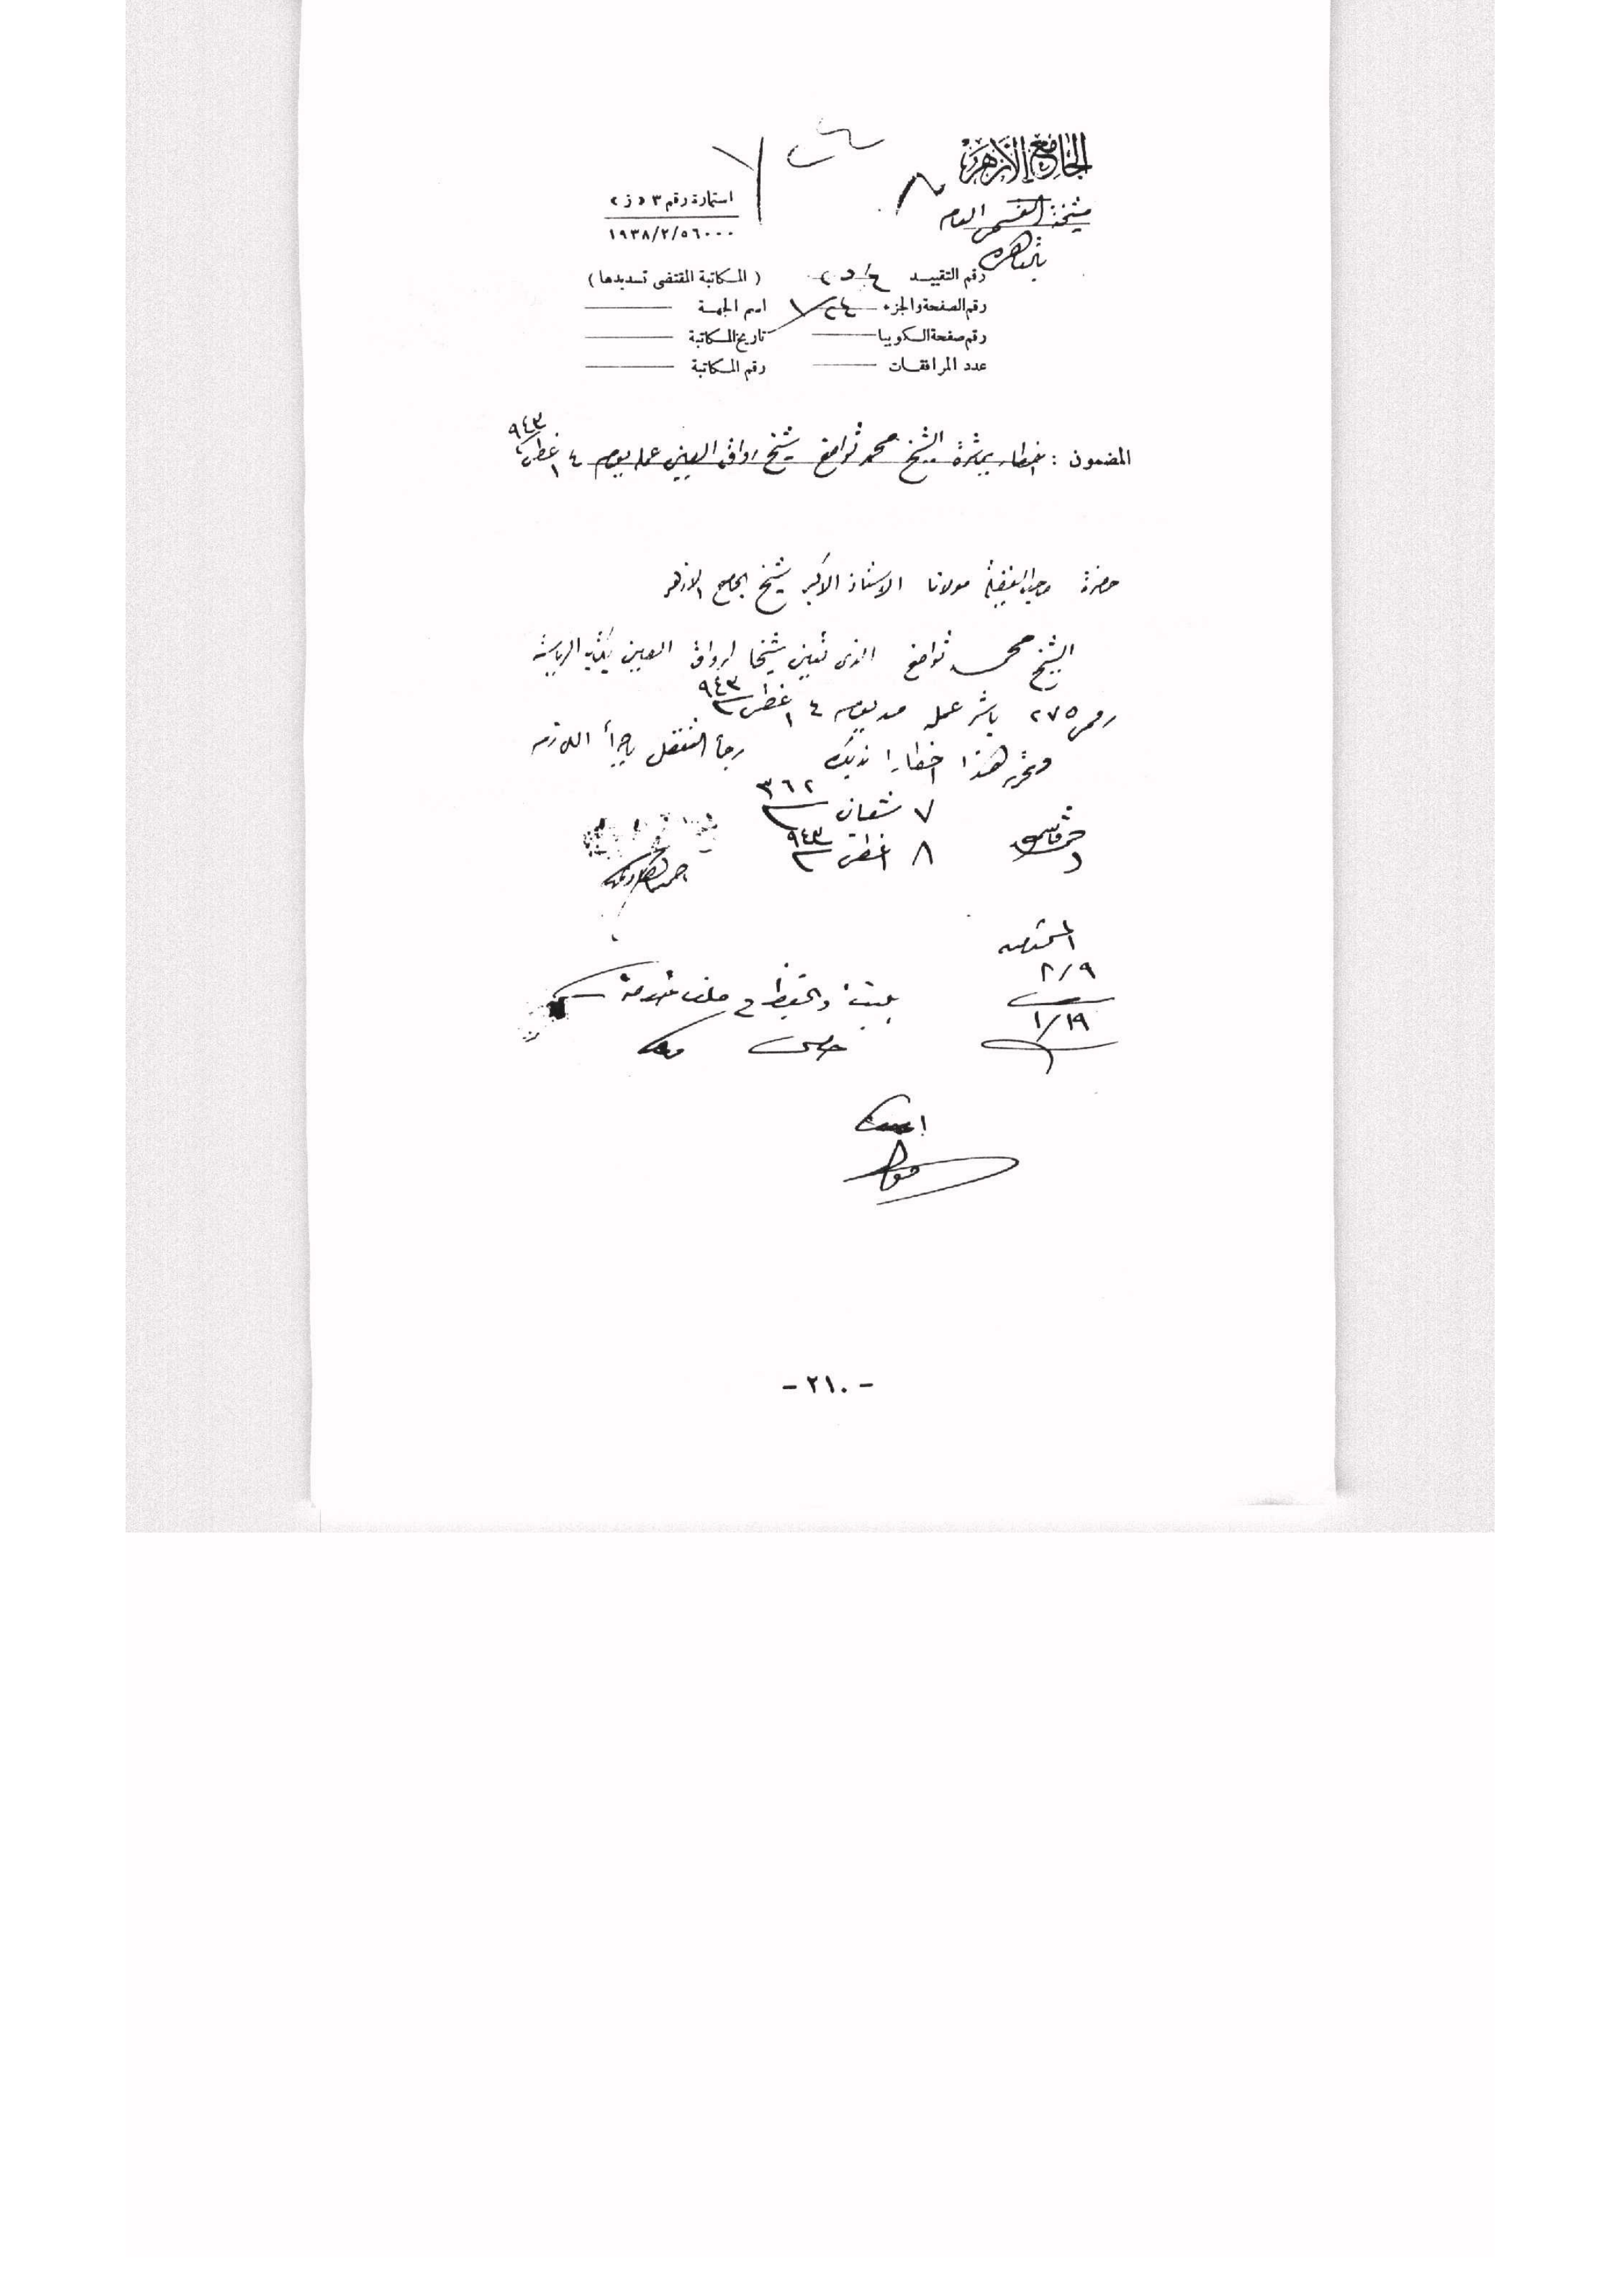 الجامع الأزهر
مشيخة القسم العام
بالقاهرة
استمارة رقم ٣ «ز»
١٩٣٨/٢/٥٦٠٠٠
رقم التقييد
( المكاتبة المقتضى تسديدها )
رقم الصفحة والجزء
اسم الجهة
رقم صفحة الكوبيا
تاريخ المكاتبة
عدد المرافقات
رقم المكاتبة
المضمون : اخطار بمباشرة الشيخ محمد تواضع شيخ رواق الصين عمله يوم ٤ اغطس ٩٤٣
حضرة صاحب الفضيلة مولانا الاستاذ الاكبر شيخ الجامع الازهر
الشيخ محمد تواضع الذى تعين شيخا لرواق الصين بكتاب الرياسة
رقم ٢٧٥ باشر عمله من يوم ٤ اغطس ٩٤٣
وتحرر هذا اخطارا بذلك رجا التفضل باجرأ اللازم
٧ شعبان ٣٦٢
٨ اغطس ٩٤٣
المختص
٢/٩
١/١٩
يثبت والحفظ فى ملف خدمته
- ٢١٠ -